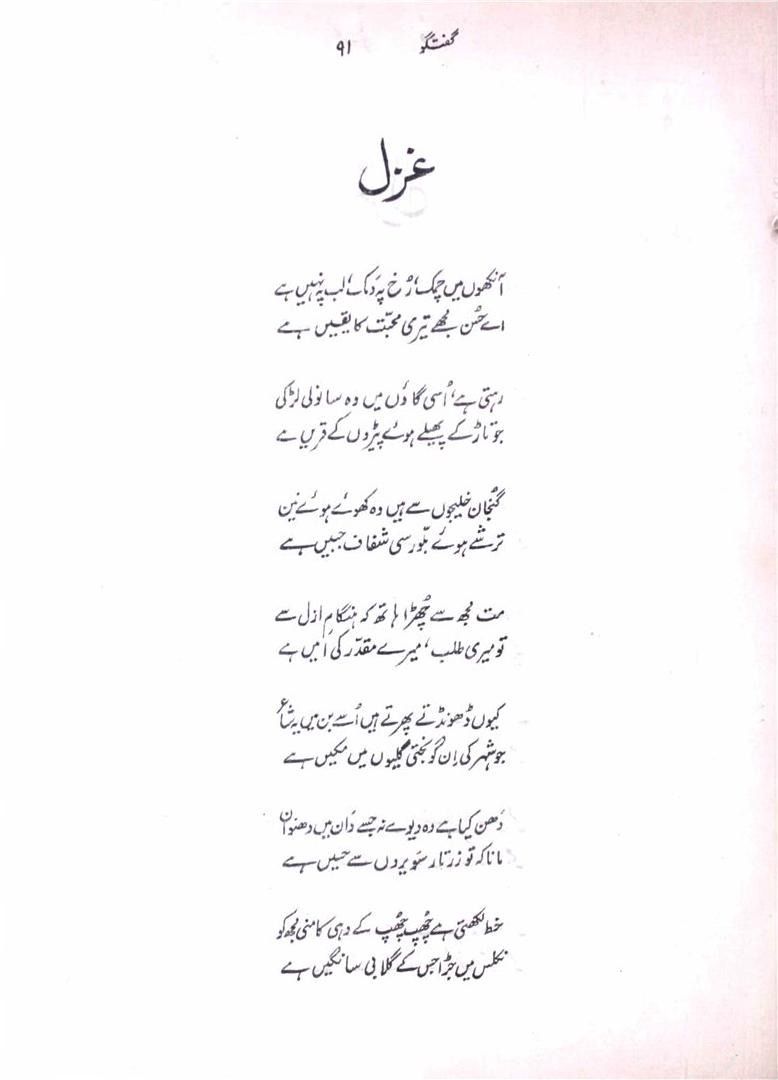 گفتگو ۹۱
غزل
آنکھوں میں چمک، رُخ پہ دَمک، لب پہ نہیں ہے
اے حُسن مجھے تیری محبّت کا یقیں ہے
رہتی ہے، اُسی گاؤں میں وہ سانولی لڑکی
جو تاڑ کے پھیلے ہوئے پیڑوں کے قریں ہے
گنجان خلیجوں سے ہیں وہ کھوئے ہوئے نین
ترشے ہوئے بلّور سی شفاف جبیں ہے
مت مجھ سے چُھڑا ہاتھ کہ ہنگامِ ازل سے
تو میری طلب، میرے مقدّر کی اَمیں ہے
کیوں ڈھونڈتے پھرتے ہیں اُسے بن میں یہ شاعر
جو شہر کی اِن گونجتی گلیوں میں مکیں ہے
دَھن کیا ہے وہ دیوے نہ جسے دَان میں دھنوان
مانا کہ تو زرتار سَویروں سے حسیں ہے
خط لکھتی ہے چُھپ چُھپ کے وہی کامنی مجھ کو
نکلس میں جڑا جس کے گلابی سا نگیں ہے